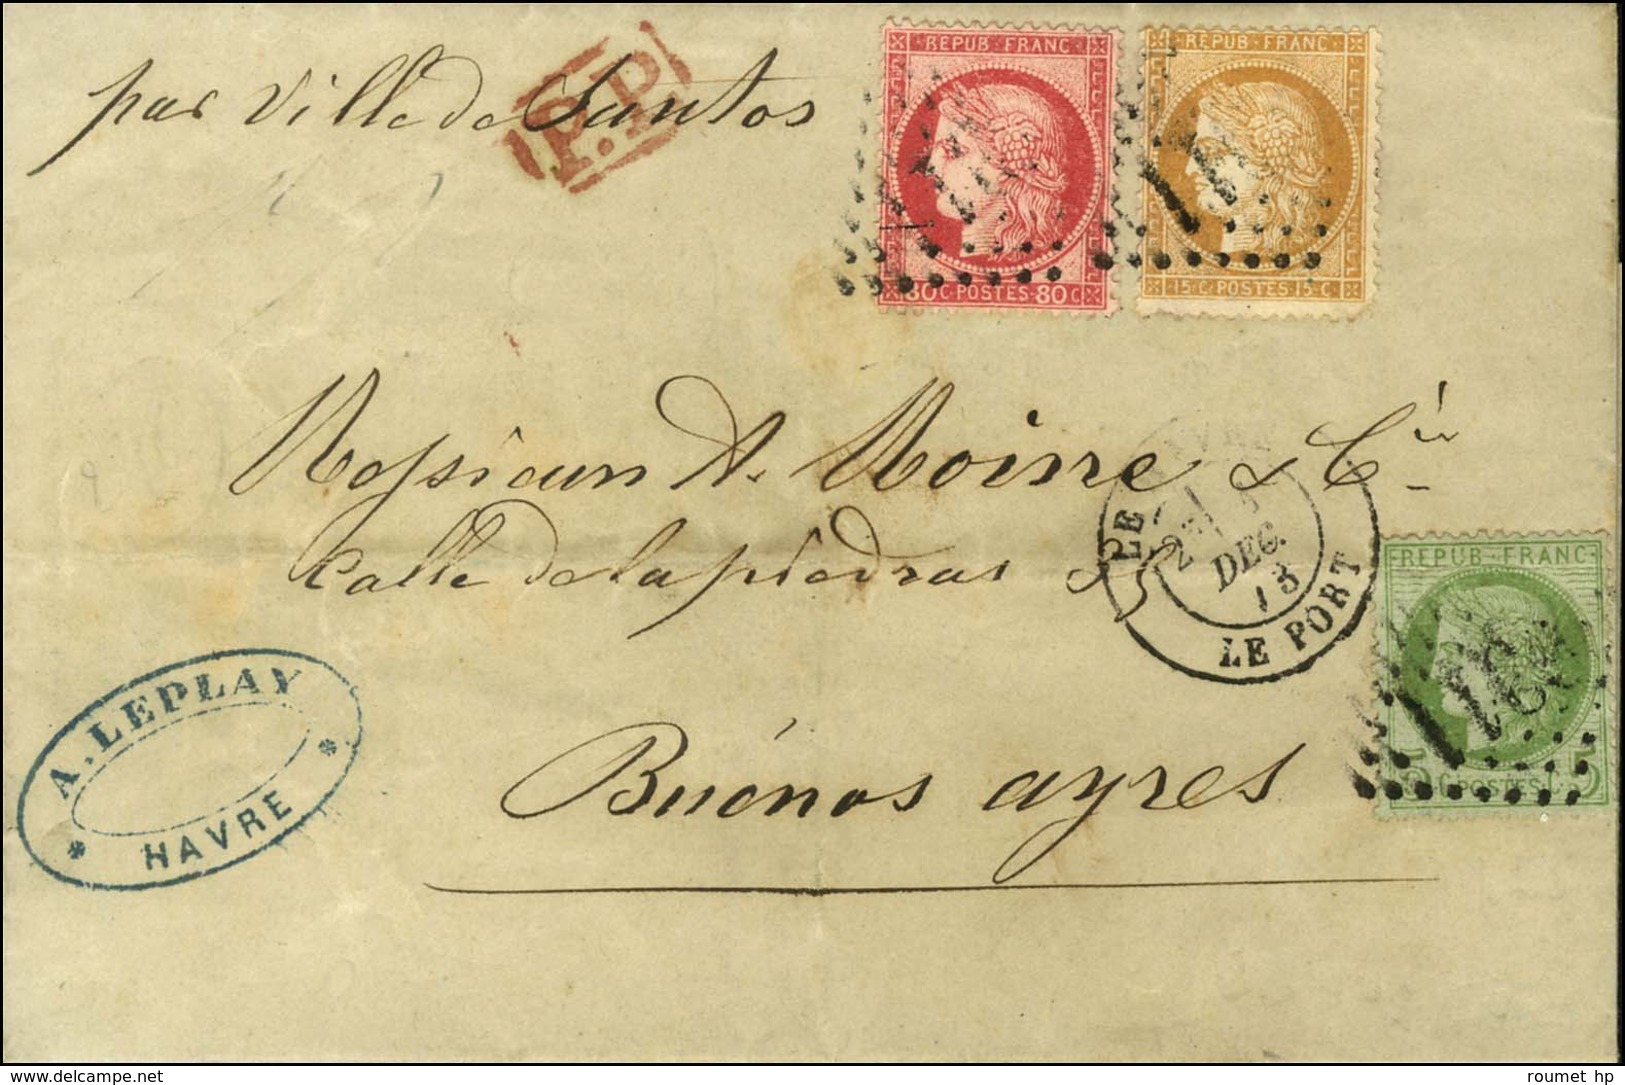 par Ville de Santos
P.P.
REPUB FRANC
80 C POSTES 80 C
REPUB FRANC
15 C POSTES 15 C
Messieurs A. Moine & Cie
Calle de la piedras 85
LE HAVRE
2E
DEC.
73
LE PORT
REPUB FRANC
5 C POSTES 5 C
A. LEPLAY
* HAVRE *
Buénos ayres
www.delcampe.net
roumet hp